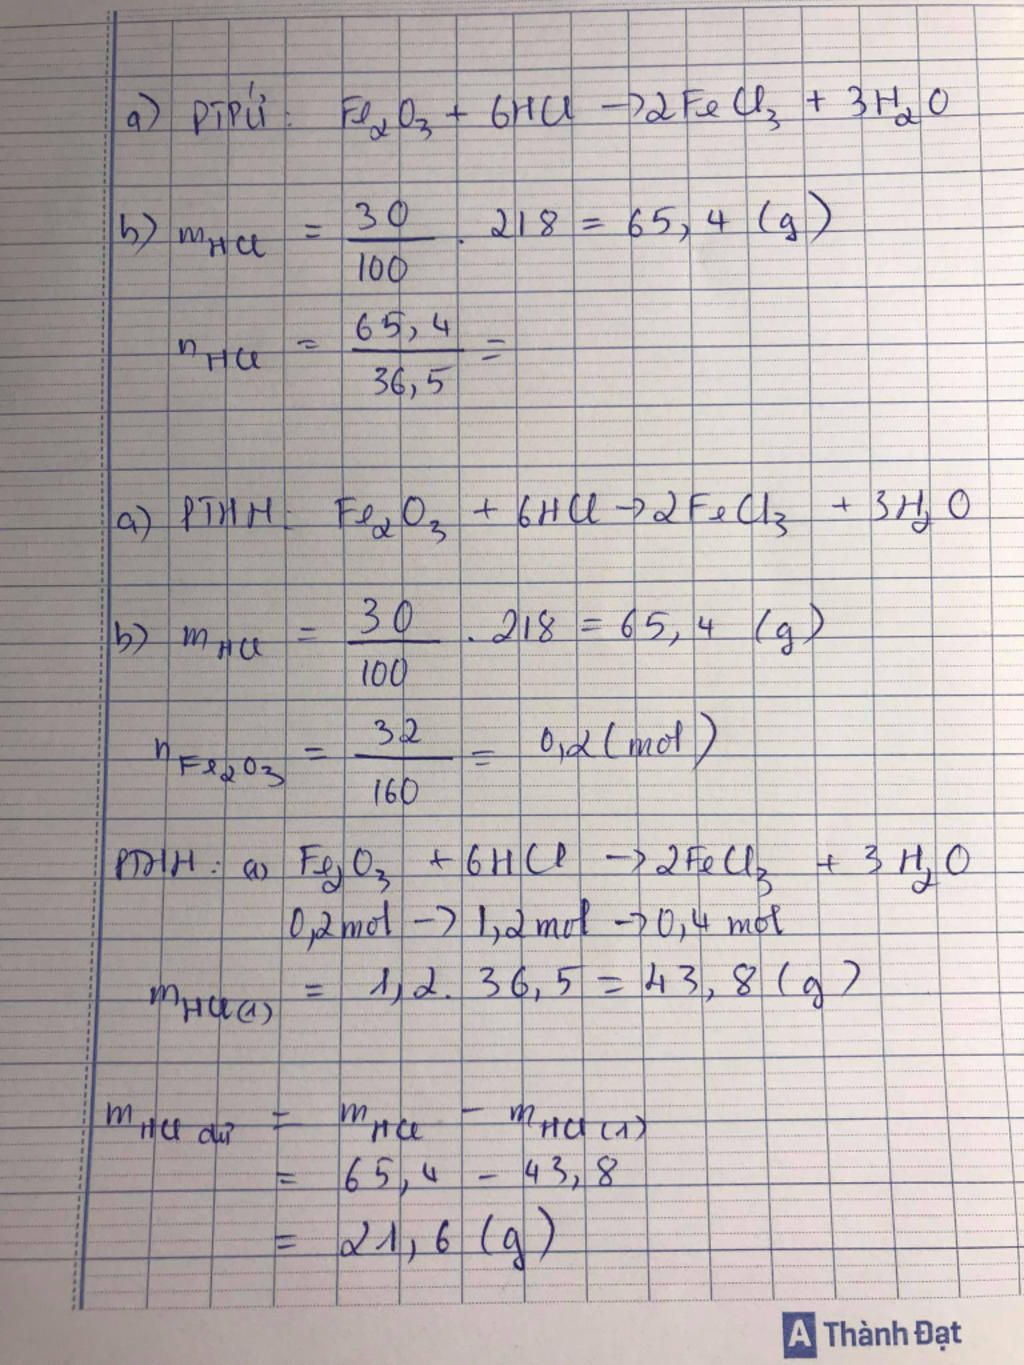 a) PTPỨ: Fe₂O₃ + 6HCl → 2FeCl₃ + 3H₂O
b) mHCl = 30/100 . 218 = 65,4 (g)
nHCl = 65,4/36,5 =
a) PTHH: Fe₂O₃ + 6HCl → 2FeCl₃ + 3H₂O
b) mHCl = 30/100 . 218 = 65,4 (g)
nFe₂O₃ = 32/160 = 0,2 (mol)
PTHH: a) Fe₂O₃ + 6HCl → 2FeCl₃ + 3H₂O
0,2 mol → 1,2 mol → 0,4 mol
mHCl(1) = 1,2 . 36,5 = 43,8 (g)
mHCl dư = mHCl - mHCl(1)
= 65,4 - 43,8
= 21,6 (g)
A Thành Đạt